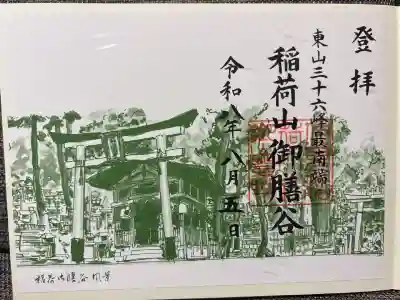 登拝
東山三十六峰最南端
稲荷山御膳谷
令和八年八月五日
稲荷御膳谷風景